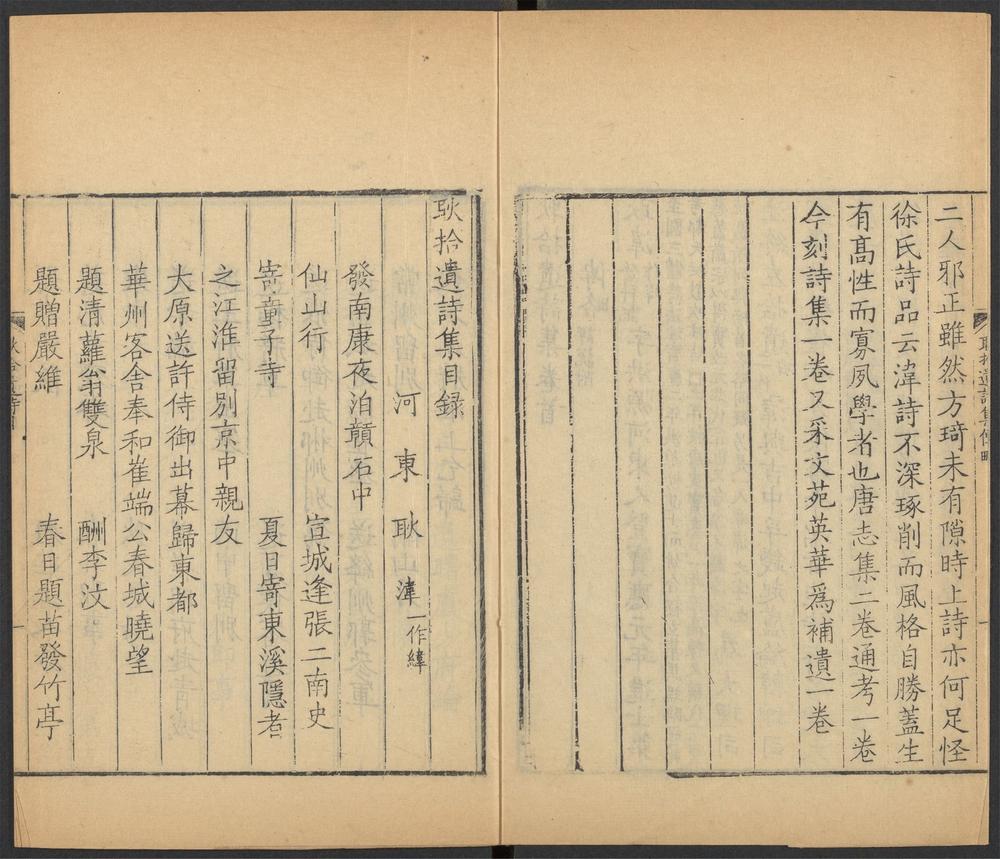 二人邪正雖然方琦未有隙時上詩亦何足怪
徐氏詩品云湋詩不深琢削而風格自勝蓋生
有髙性而寡夙學者也唐志集二卷通考一卷
今刻詩集一卷又采文苑英華爲補遺一卷
耿拾遺詩集目録
河東 耿湋一作緯
發南康夜泊贛石中
仙山行 宣城逢張二南史
寄童子寺 夏日寄東溪隱者
之江淮留別京中親友
大原送許侍御出幕歸東都
華州客舎奉和崔端公春城曉望
題清蘿翁雙泉 酬李汶
題贈嚴維 春日題苗發竹亭